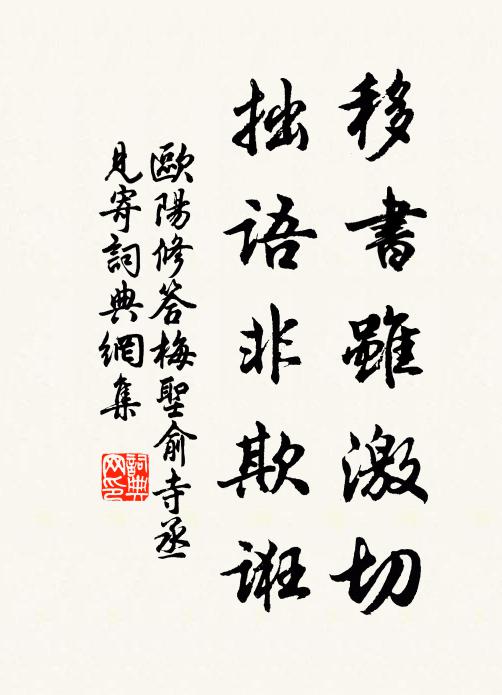 移書雖激切
拙語非欺誑
歐陽修答梅聖俞寺丞
見寄詞典網集
詞典网印